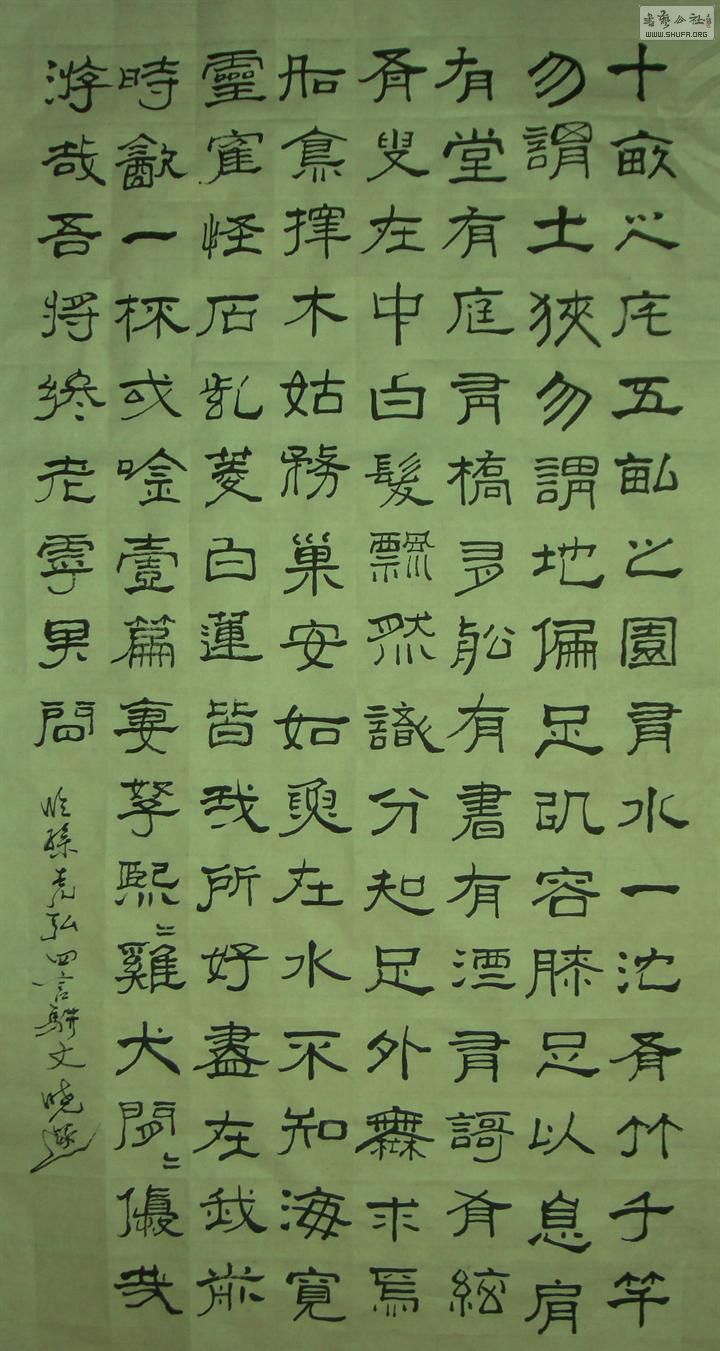 十畝之宅五畝之園有水一池有竹千竿
勿謂土狹勿謂地偏足以容膝足以息肩
有堂有庭有橋多船有書有酒有謌有絃
有叟在中白髮飄然識分知足外無求焉
鳥擇木姑務巢安如在水不知海寬
靈寉怪石菱白蓮皆我所好盡在我前
時飲一杯或唫壹篇妻孥熙〻雞犬閒〻優哉
游哉吾將終老乎其間
四言駢文
書藝公社
WWW.SHUFA.ORG